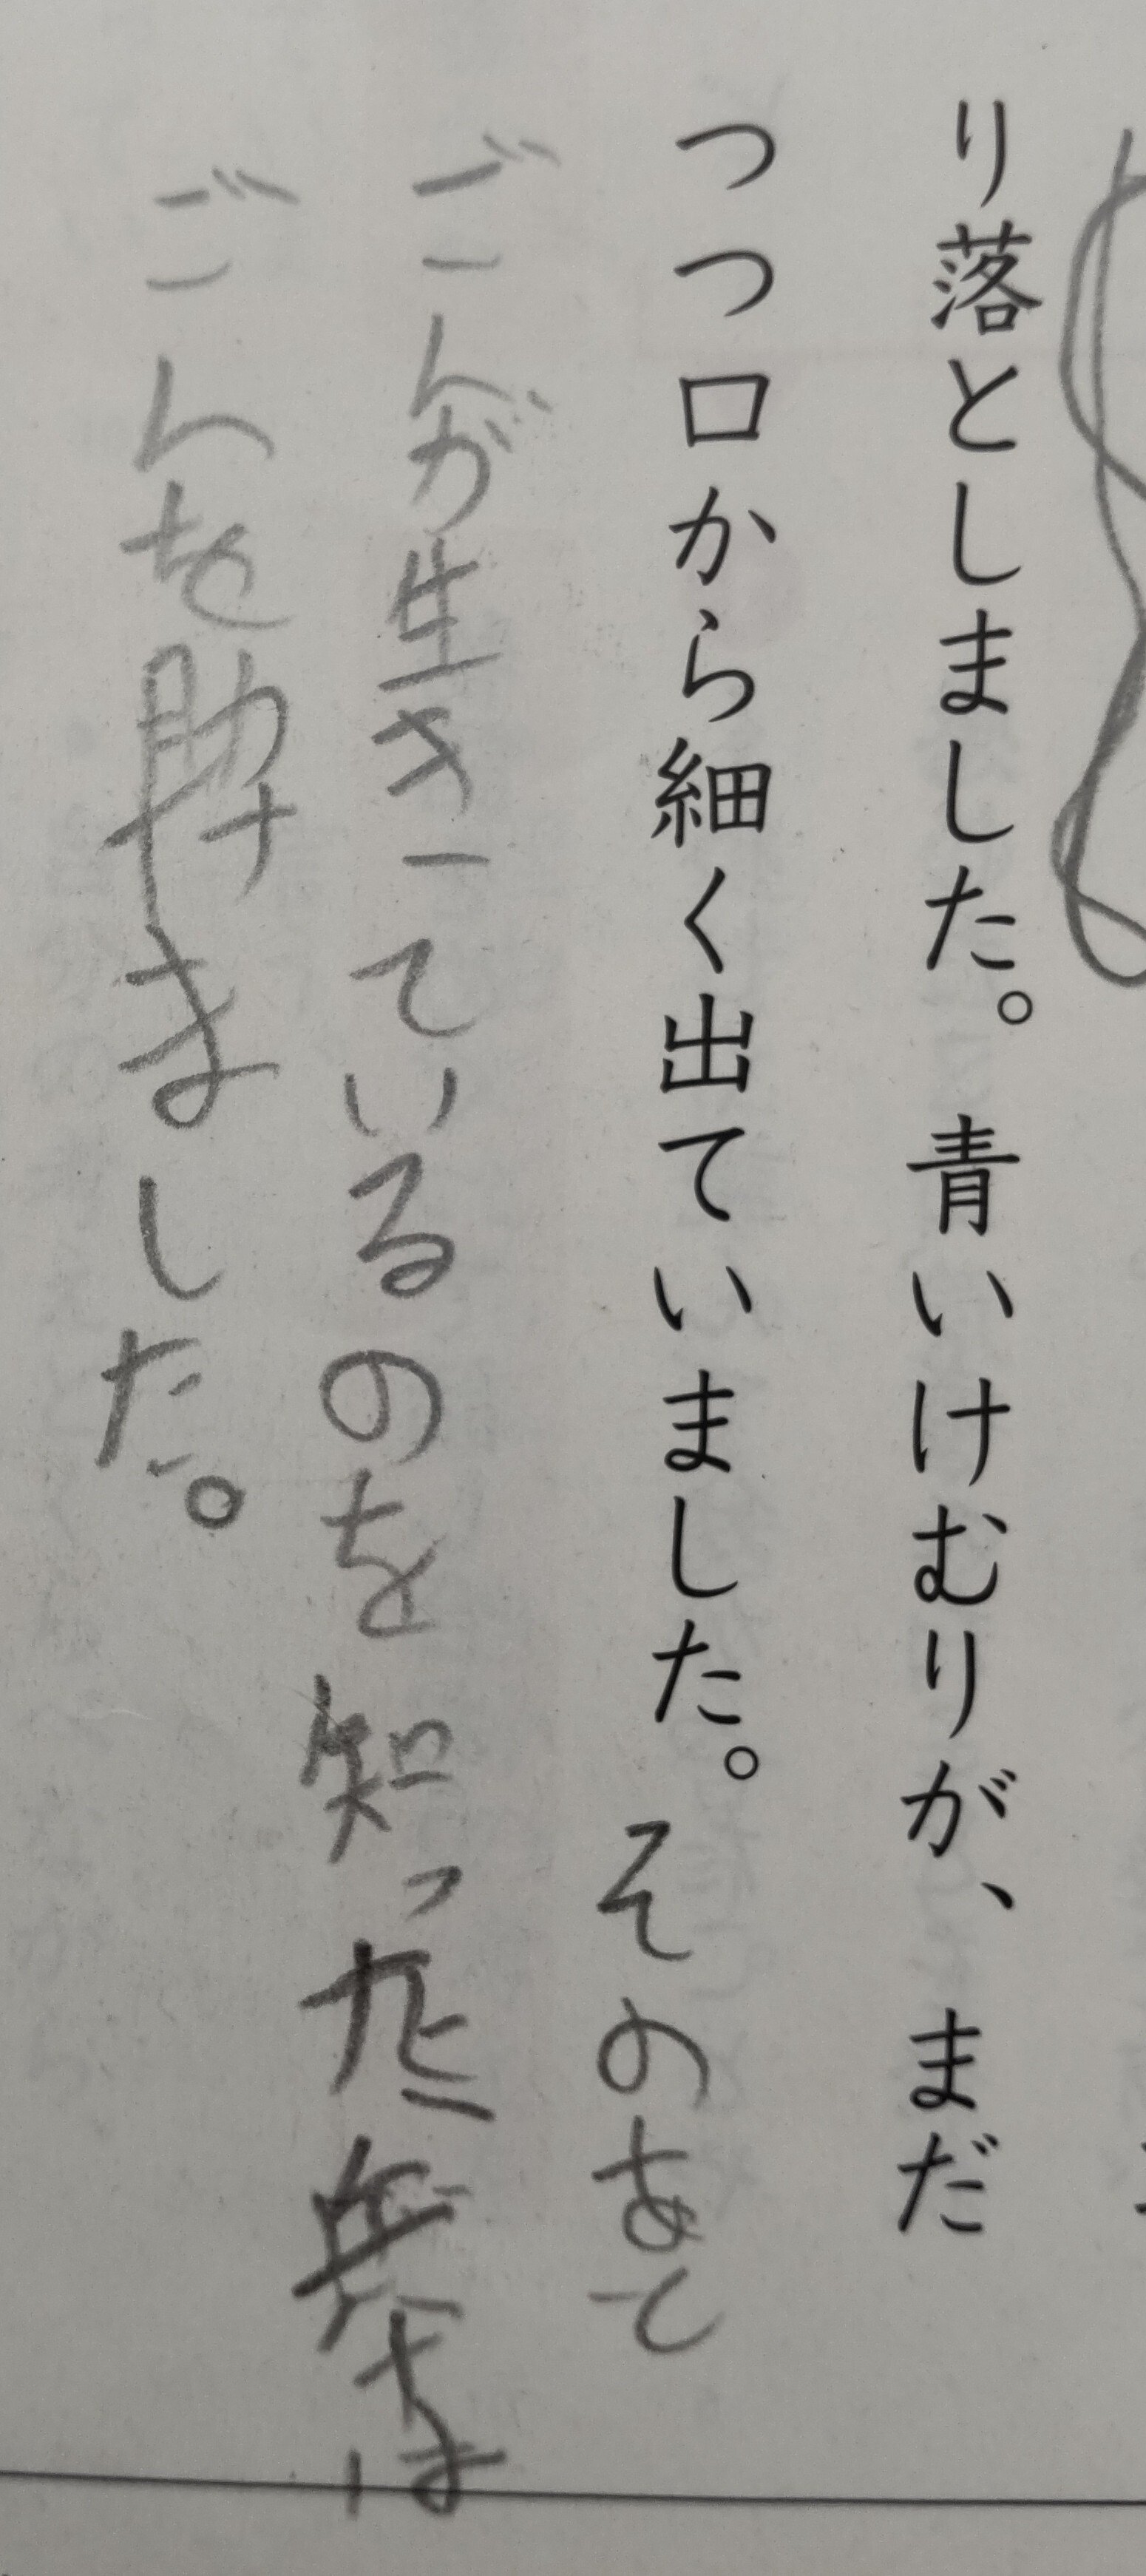 り落としました。青いけむりが、まだ
つつ口から細く出ていました。そのあと
ごんが生きているのを知った兵十は
ごんを助けました。